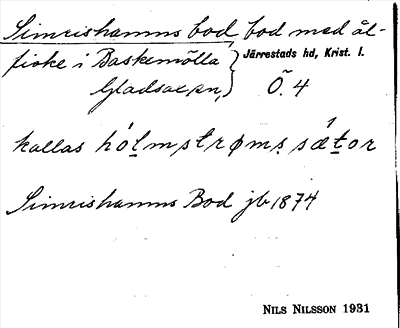 Simrishamns bod, bod med ål-
fiske i Baskemölla } Järrestads hd, Krist. l.
Gladsax sn, Ö. 4
kallas hólmstrøms sǽtor
Simrishamns Bod jb 1874
NILS NILSSON 1931